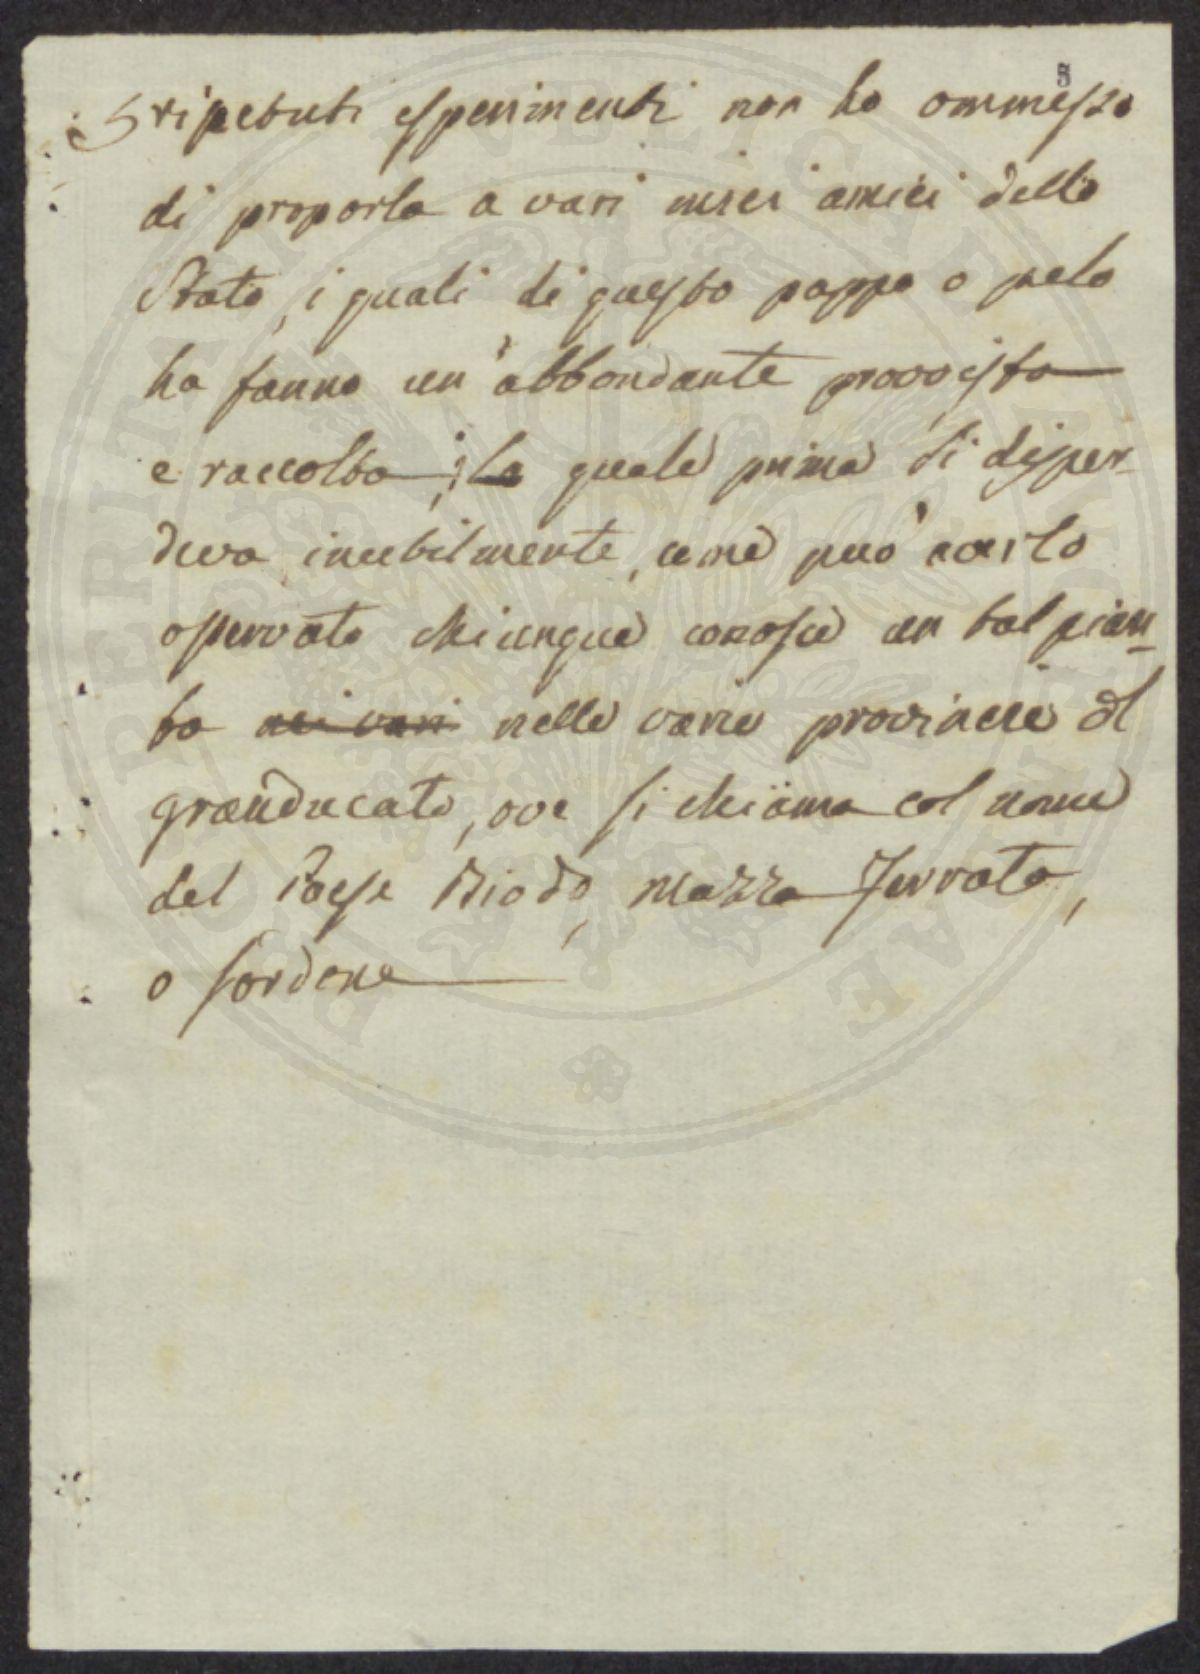 5
ripetuti esperimenti non ho ommesso
di proporla a vari miei amici dello
Stato, i quali di questo pappo o pelo
ha fanno un'abbondante provvista
e raccolta; la quale prima si disper-
deva inutilmente, come può
osservato chiunque conosce un tal pian-
ta nei vari nelle varie provincie del
granducato, ove si chiama col nome
del Paese Biodo, Mazza Ferrata,
o Sordone